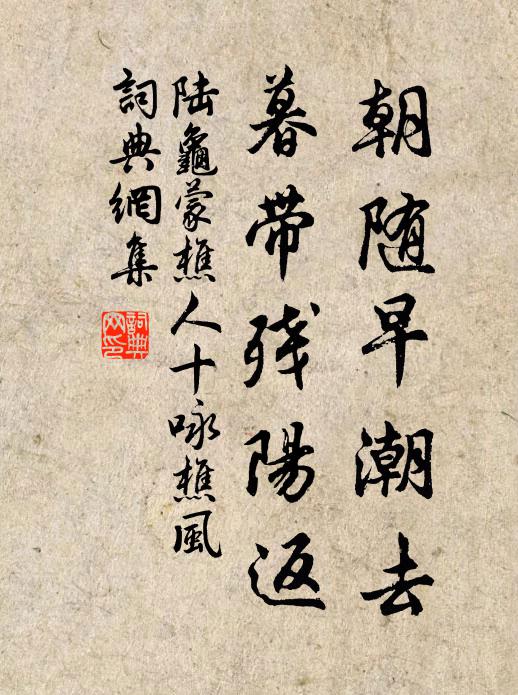 朝随早潮去
暮带残陽返
陆龜蒙樵人十咏樵風
詞典網集
詞典
网印